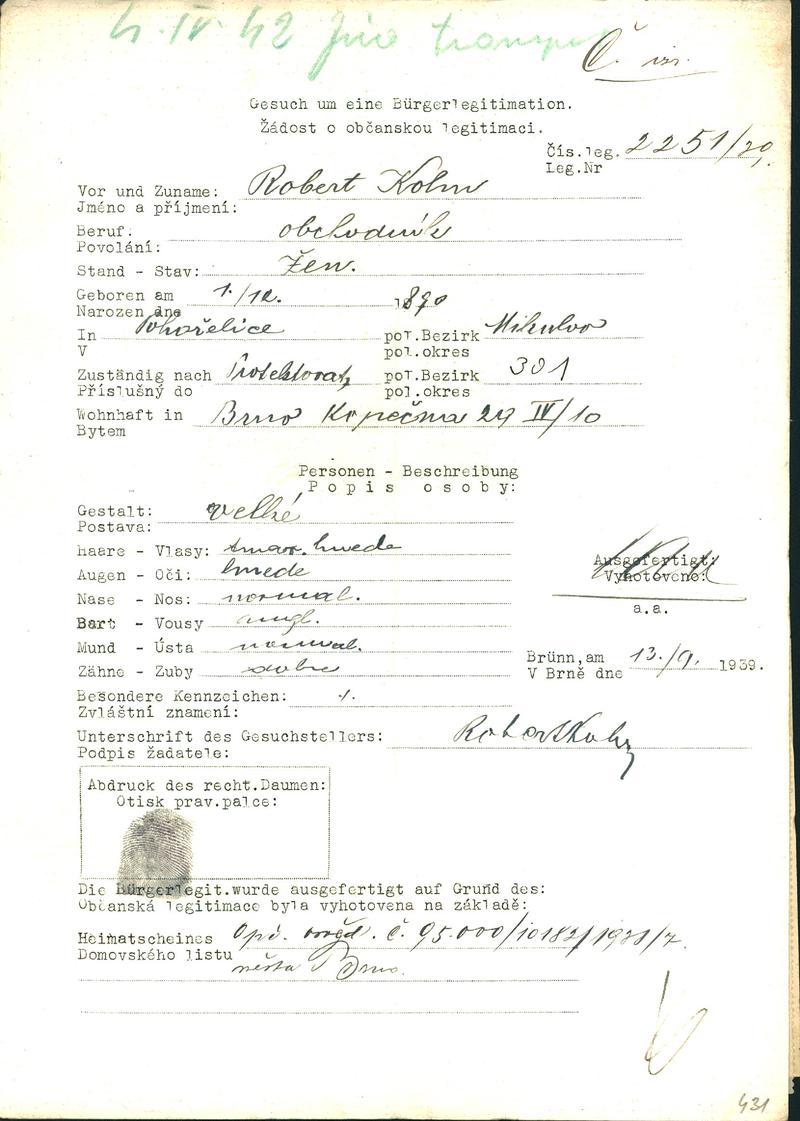 4. IV. 42
Č.
Gesuch um eine Bürgerlegitimation.
Žádost o občanskou legitimaci.
Čís.leg. 2251/39
Leg.Nr
Vor und Zuname: Robert Kohn
Jméno a příjmení:
Beruf: obchodník
Povolání:
Stand - Stav: žen.
Geboren am 1./12. 1890
Narozen dne
In Pohořelice pol.Bezirk Mikulov
V pol.okres
Zuständig nach Protektorat, pol.Bezirk 301
Příslušný do pol.okres
Wohnhaft in Brno Kopečná 29 IV/10
Bytem
Personen - Beschreibung
Popis osoby:
Gestalt: velké
Postava:
Haare - Vlasy: tmav. hnede
Augen - Oči: hnede
Nase - Nos: normal.
Bart - Vousy angl.
Mund - Ústa normal.
Zähne - Zuby dobre
Ausgefertigt:
Vyhotoveno:
a.a.
Brünn,am 13./9. 1939.
V Brně dne
Besondere Kennzeichen: ·/.
Zvláštní znamení:
Unterschrift des Gesuchstellers: Robert Kohn
Podpis žadatele:
Abdruck des recht.Daumen:
Otisk prav.palce:
Die Bürgerlegit.wurde ausgefertigt auf Grund des:
Občanská legitimace byla vyhotovena na základě:
Heimatscheines č. 95.000/10182/1931/7.
Domovského listu města Brna.
431